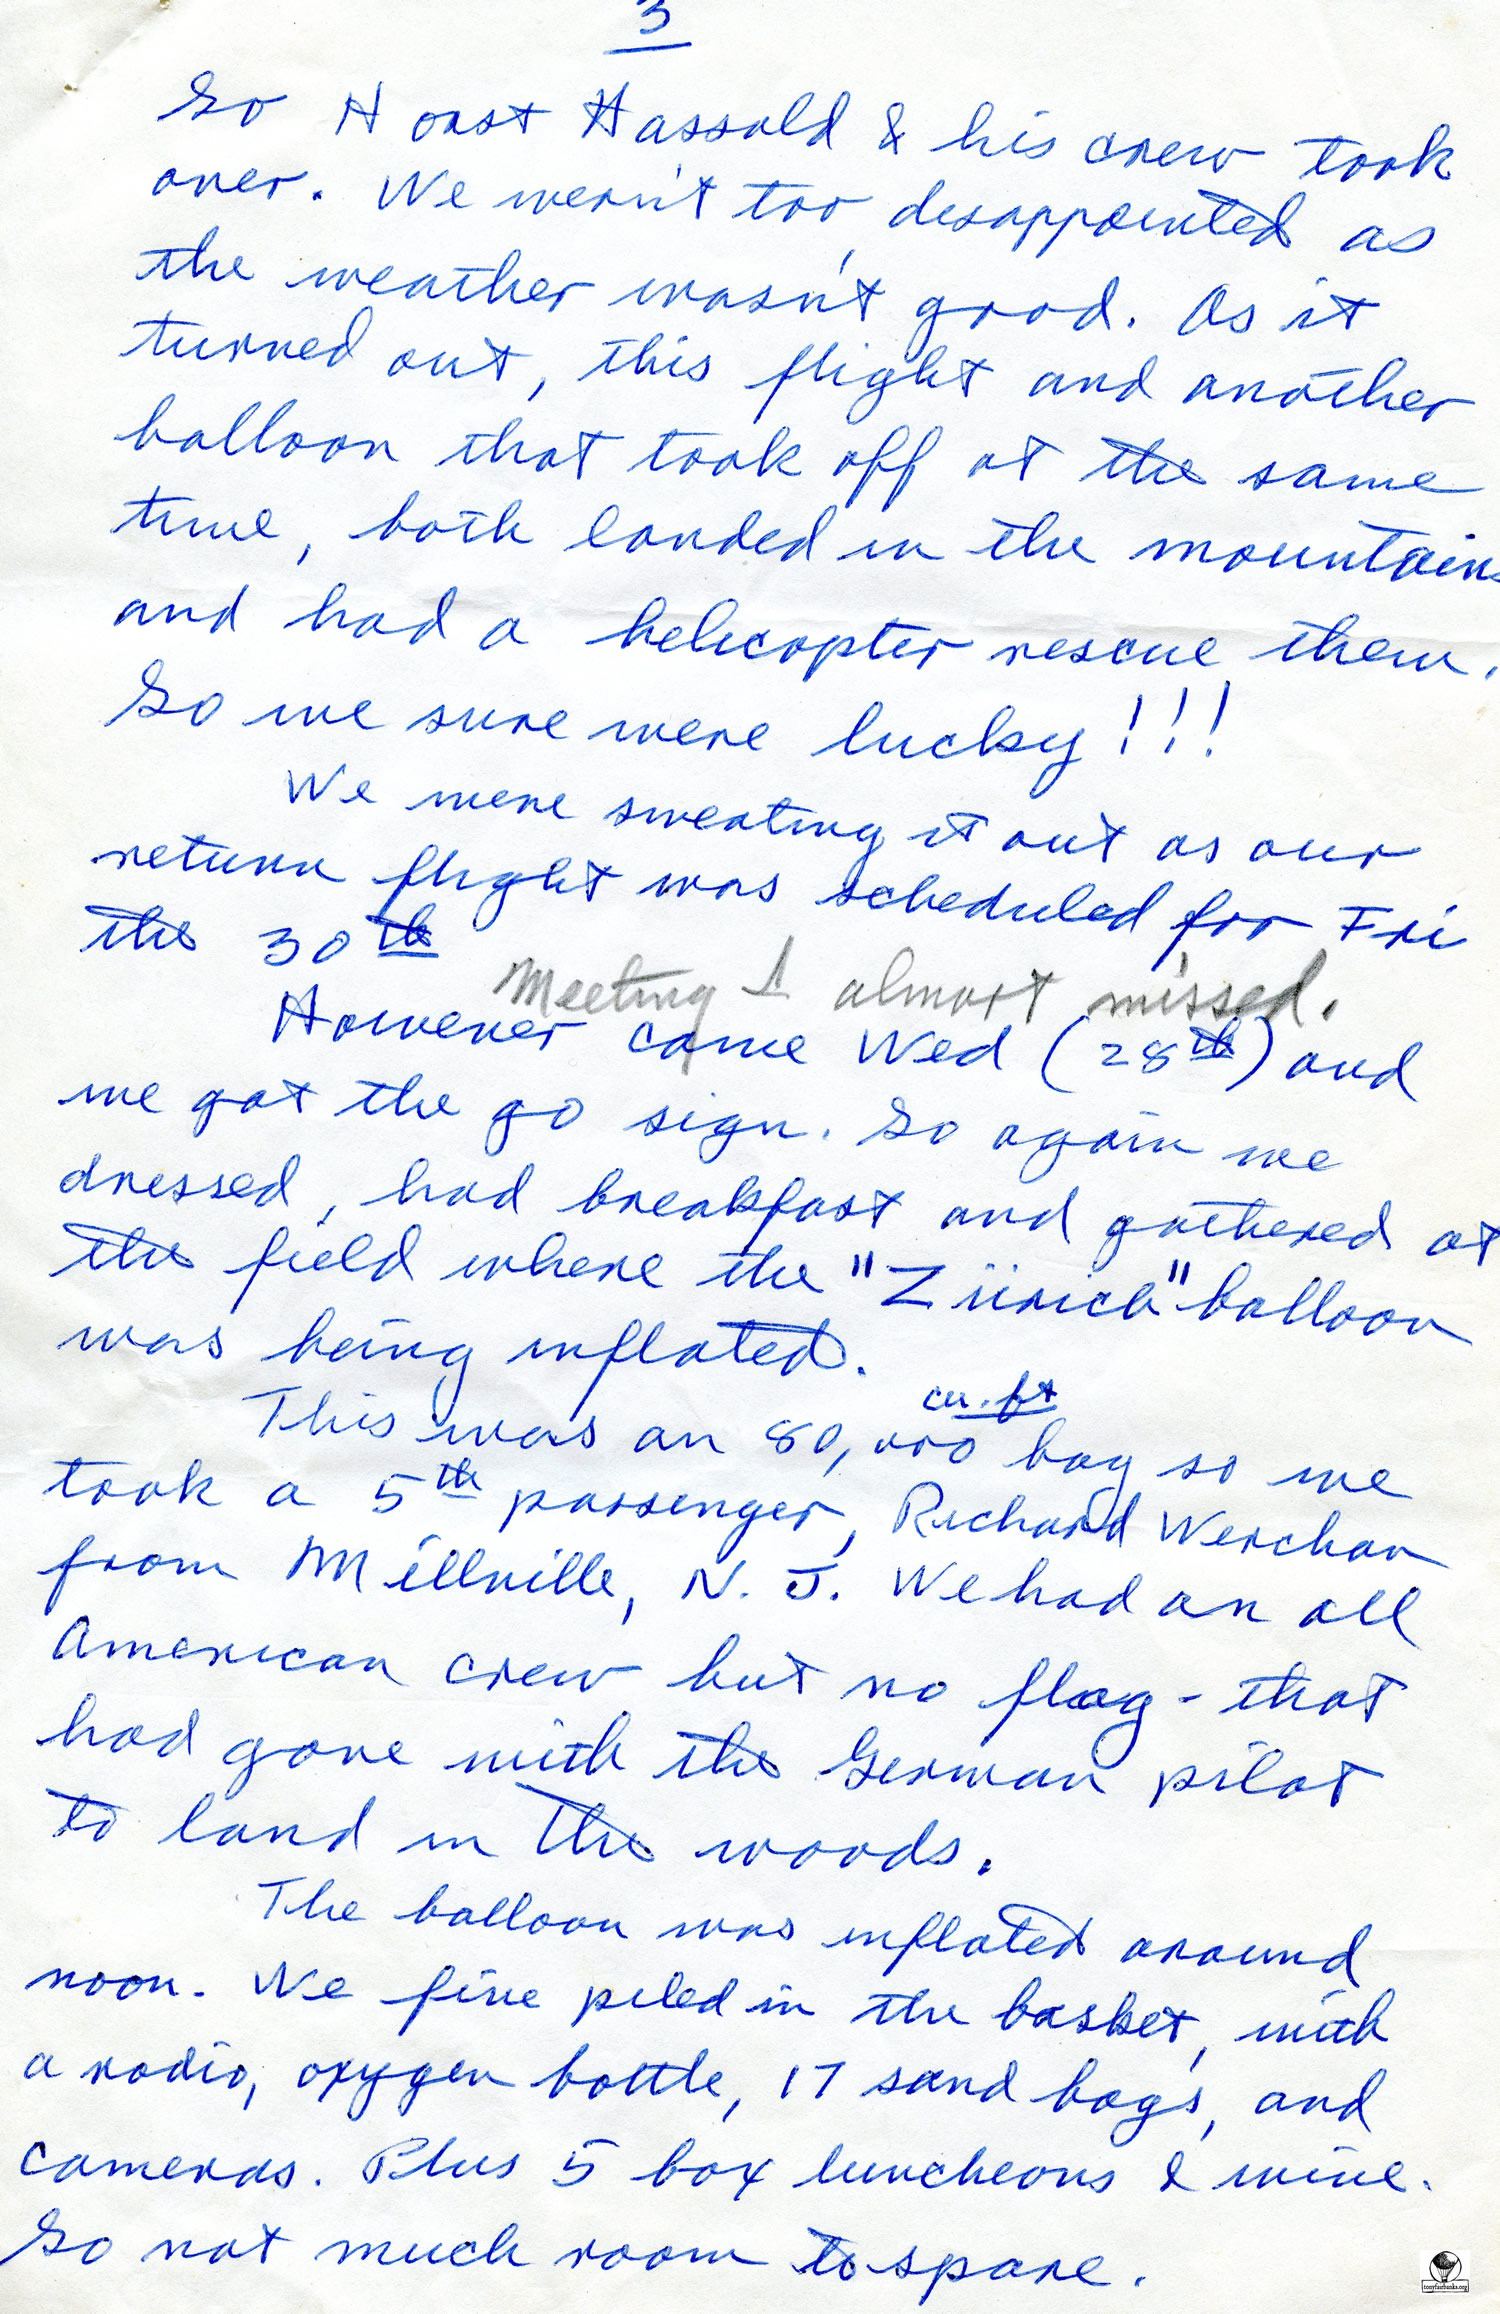 3
So Horst Hassold & his crew took
over. We weren't too disappointed as
the weather wasn't good. As it
turned out, this flight and another
balloon that took off at the same
time, both landed in the mountains
and had a helicopter rescue them.
So we sure were lucky!!!
We were sweating it out as our
return flight was scheduled for Fri
the 30th
Meeting I almost missed.
However came Wed (28th) and
we got the go sign. So again we
dressed, had breakfast and gathered at
the field where the "Zürich" balloon
was being inflated.
cu. ft
This was an 80,000 bag so we
took a 5th passenger, Richard Werchan
from Millville, N. J. We had an all
American crew but no flag - that
had gone with the German pilot
to land in the woods.
The balloon was inflated around
noon. We five piled in the basket, with
a radio, oxygen bottle, 17 sand bags, and
cameras. Plus 5 box luncheons & wine.
So not much room to spare.
tonyfairbanks.org